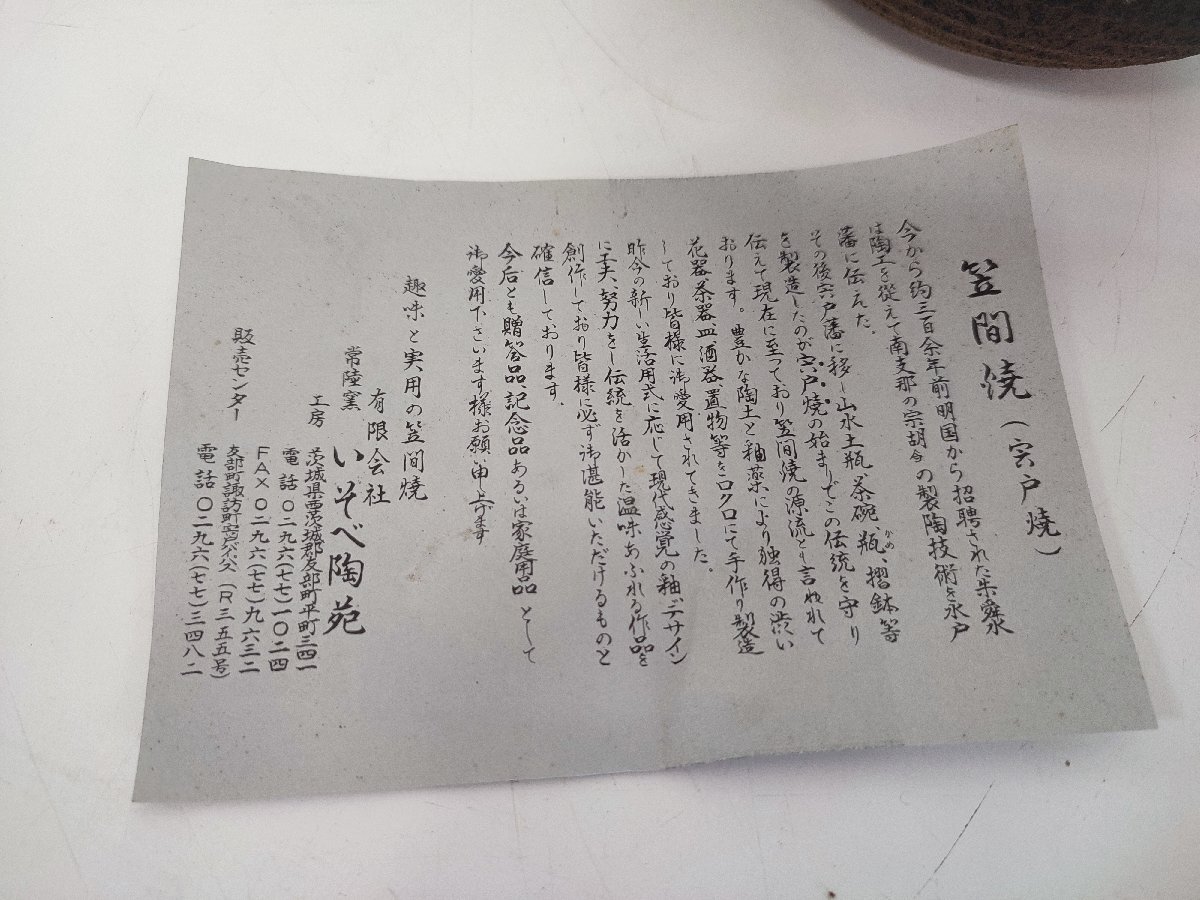 笠間焼（宍戸焼）
今から約三百余年前明国から招聘された朱舜水
は陶工を従えて南支那の宗胡令の製陶技術を水戸
藩に伝えた。
その後宍戸藩に移し山水土瓶、茶碗、瓶、摺鉢等
かめ
を製造したのが宍戸焼の始まりでこの伝統を守り
伝えて現在に至っており笠間焼の源流とも言われて
おります。豊かな陶土と釉薬により独得の渋い
花器、茶器、皿、酒器、置物等をロクロにて手作り製造
しており皆様に御愛用されてきました。
昨今の新しい生活用式に応じて現代感覚の釉、デザイン
に工夫、努力をし伝統を活かした温味あふれる作品を
創作しており皆様に必ず御堪能いただけるものと
確信しております。
今后とも贈答品、記念品あるいは家庭用品として
御愛用下さいます様お願い申し上げます
趣味と実用の笠間焼
有限会社
常陸窯 いそべ陶苑
工房 茨城県西茨城郡友部町平町三四一
電話〇二九六（七七）一〇二四
ＦＡＸ〇二九六（七七）九六三二
販売センター 友部町諏訪町宍戸バイパス（Ｒ三五五号）
電話〇二九六（七七）三四八二